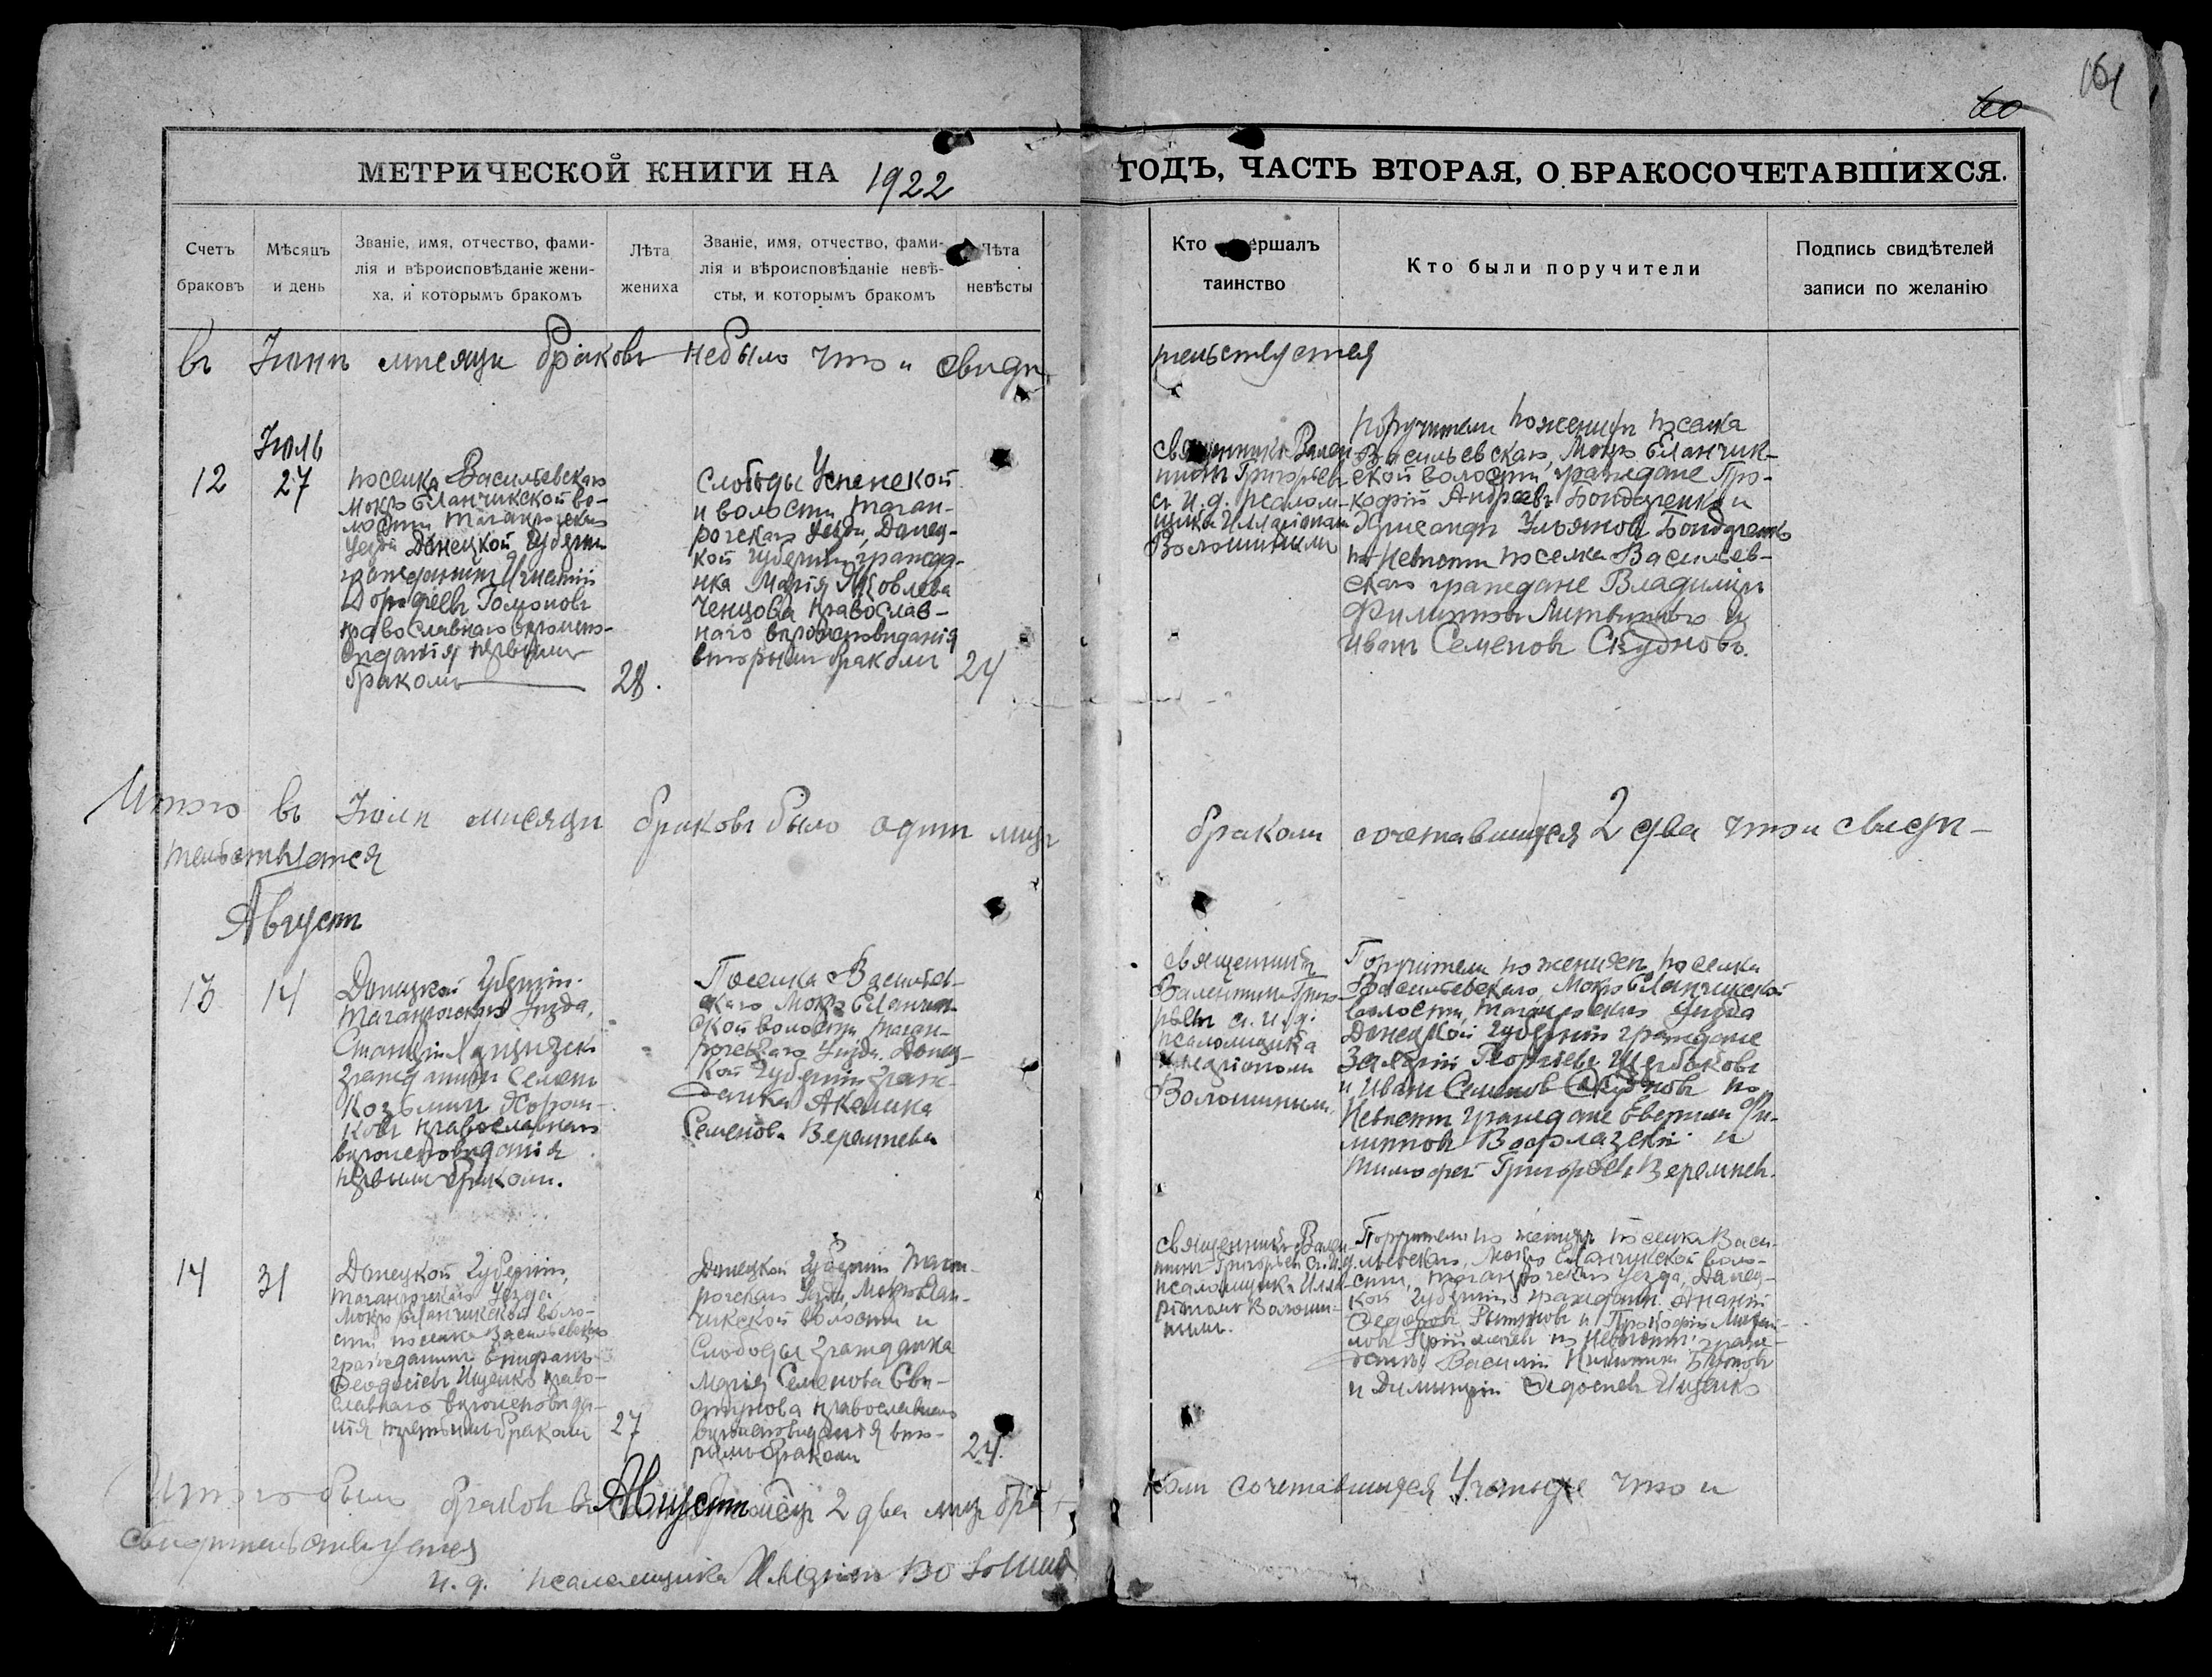 161
60
МЕТРИЧЕСКОЙ КНИГИ НА 1922 ГОДЪ, ЧАСТЬ ВТОРАЯ, О БРАКОСОЧЕТАВШИХСЯ.
Счетъ
браковъ
Мѣсяцъ
и день
Званіе, имя, отчество, фами-
лія и вѣроисповѣданіе жени-
ха, и которымъ бракомъ
Лѣта
жениха
Званіе, имя, отчество, фами-
лія и вѣроисповѣданіе невѣ-
сты, и которымъ бракомъ
Лѣта
невѣсты
Кто ершалъ
таинство
Кто были поручители
Подпись свидѣтелей
записи по желанію
въ Іюнѣ мисяци браковъ небыло что и свиди-
тельствуется
Іюль
12
27
поселка Васильевскаго
Мокро Еланчикской во-
лости Таганрогскаго
уезда Донецкой Губерни
гражданинъ Игнатий
Дорофеевъ Гомоновъ
православнаго вероиспо-
ведания первымъ
бракомъ
28.
Слободы Успенской
и волости Таган-
рогскаго уезда, Донец-
кой губернии гражда-
нка Марія Яковлева
Ченцова православ-
наго вероисповиданія
вторымъ бракомъ
24
Священникъ Вален-
тинъ Григорьев
с. и. д. псалом-
щика Илларіонамъ
Волошинымъ
поручители по жениху поселка
Васильевскаго, Мокро Еланчик-
ской волости, граждане Про-
кофій Андреевъ Бондаренко и
Ульяновъ Бондаренко
по невести поселка Васильев-
скаго граждане Владимиръ
Филиповъ Литвиново и
Иванъ Семеновъ Скудновъ.
Итого въ Іюли мисяци браковъ было одинъ лицъ
бракомъ сочетавшихся 2 два что и свиди-
тельствуется
Августъ
13
14
Донецкой Губерніи
Таганрогскаго Уезда,
Станціи
гражданинъ Семенъ
Козьминъ Хорош-
ковъ православнаго
вероисповиданія
первымъ бракомъ.
Поселка Васильев-
скаго Мокро Еланчик-
ской волости Таган-
рогскаго Уезда Донец-
кой Губерніи граж-
данка Акелина
Семенова Веремиева
Священникъ
Валентинъ Григо-
рьевъ с. и. д.
псаломщика
Илларіономъ
Волошинымъ
Поручители по женихе поселка
Васильевскаго, Мокро Еланчикской
волости, Таганрогскаго Уезда
Донецкой Губерній граждане
Захарій Георгиевъ Щербаковъ
и Иванъ Семеновъ Скудновъ по
Невести граждане Евертий Фи-
липповъ Водолазски и
Тимофей Григорьевъ Веремиев.
14
31
Донецкой Губернии,
Таганрогскаго Уезда
Мокро Еланчикской воло-
сти поселка Васильевскаго
гражданинъ Епифанъ
Феодосиевъ Ищенко право-
славнаго вероисповида-
ния третьимъ бракомъ
27
Донецкой Губернии Таган-
рогскаго Уезда, Мокро Елан-
чикской волости и
Слободы гражданка
Марія Семенова Сви-
православнаго
вероисповидания вто-
рымъ бракомъ
24.
Священникъ Вален-
тинъ Григорьев с. и. д.
псаломщика Илла-
ріономъ Волоши-
нымъ.
Поручители по жениху поселка Васи-
льевскаго, Мокро Еланчикской воло-
сти, Таганрогскаго Уезда, Донец-
кой Губерніи гражданин Ананій
Федоровъ и Прокофий Михай-
ловъ по Невести граж-
данин Василий Никитинъ
и Димитрий Федосиев Ищенко
Итого было браков въ Августъ 2 два лицъ бра-
комъ сочетавшихся 4 четыре что и
свидетельствуется
и. д. псаломщика Иларіонъ Волошин